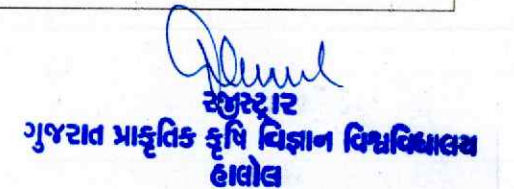 રજીસ્ટ્રાર
ગુજરાત પ્રાકૃતિક કૃષિ વિજ્ઞાન વિશ્વવિદ્યાલય
હાલોલ